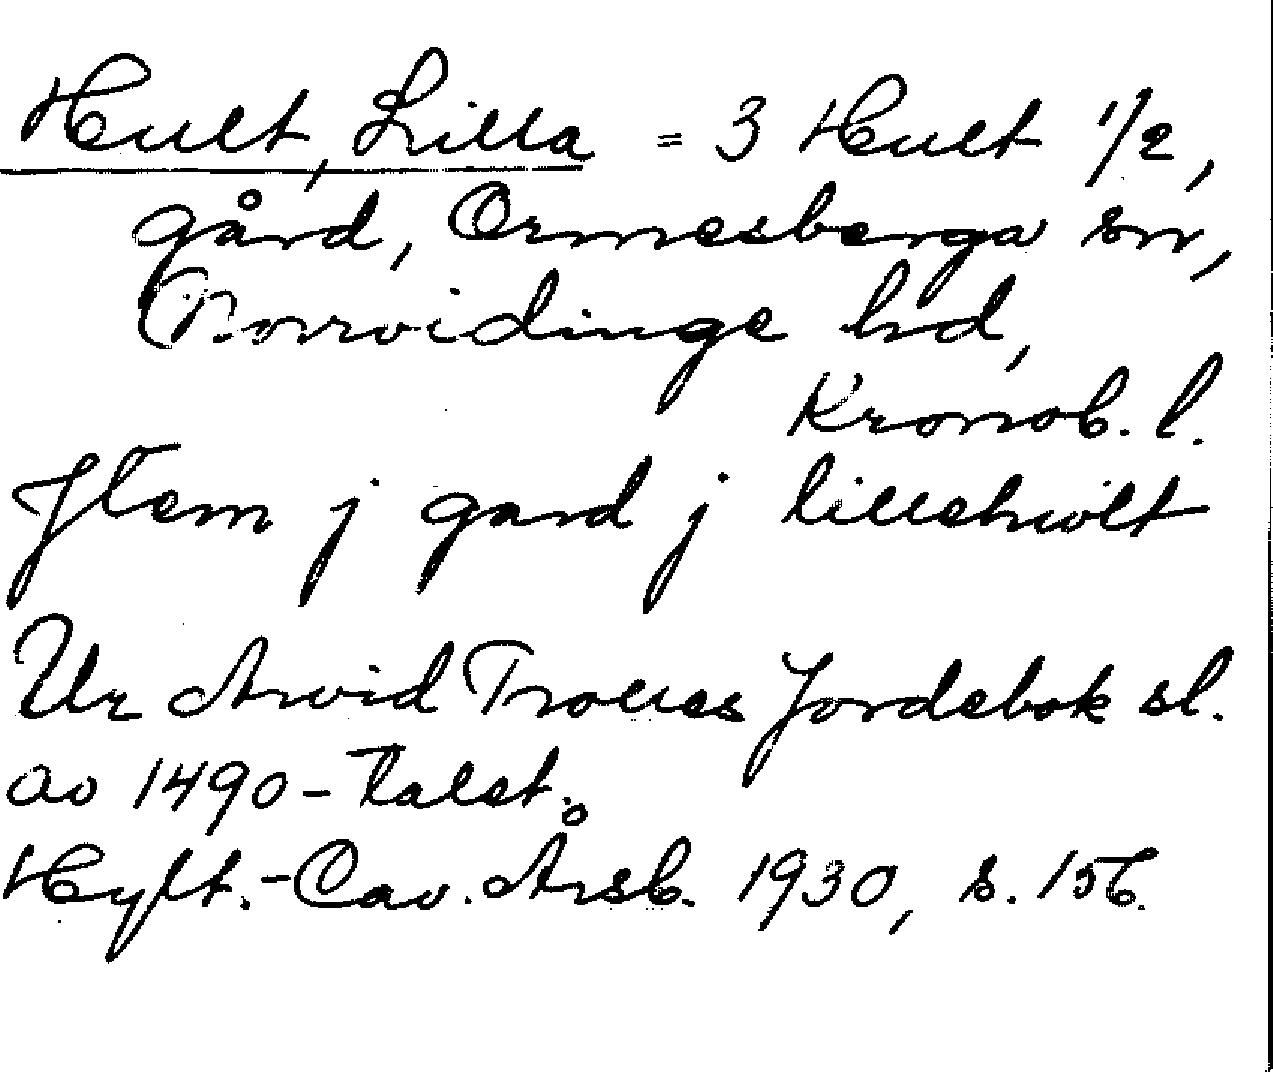 Hult, Lilla = 3 Hult 1/2,
gård, Ormesberga sn,
Norrvidinge hd,
Kronob. l.
Jtem j gard j lillehwlt
Ur Arvid Trolles Jordebok sl.
av 1490-talet.
Hylt.-Cav. Årsb. 1930, s. 156.